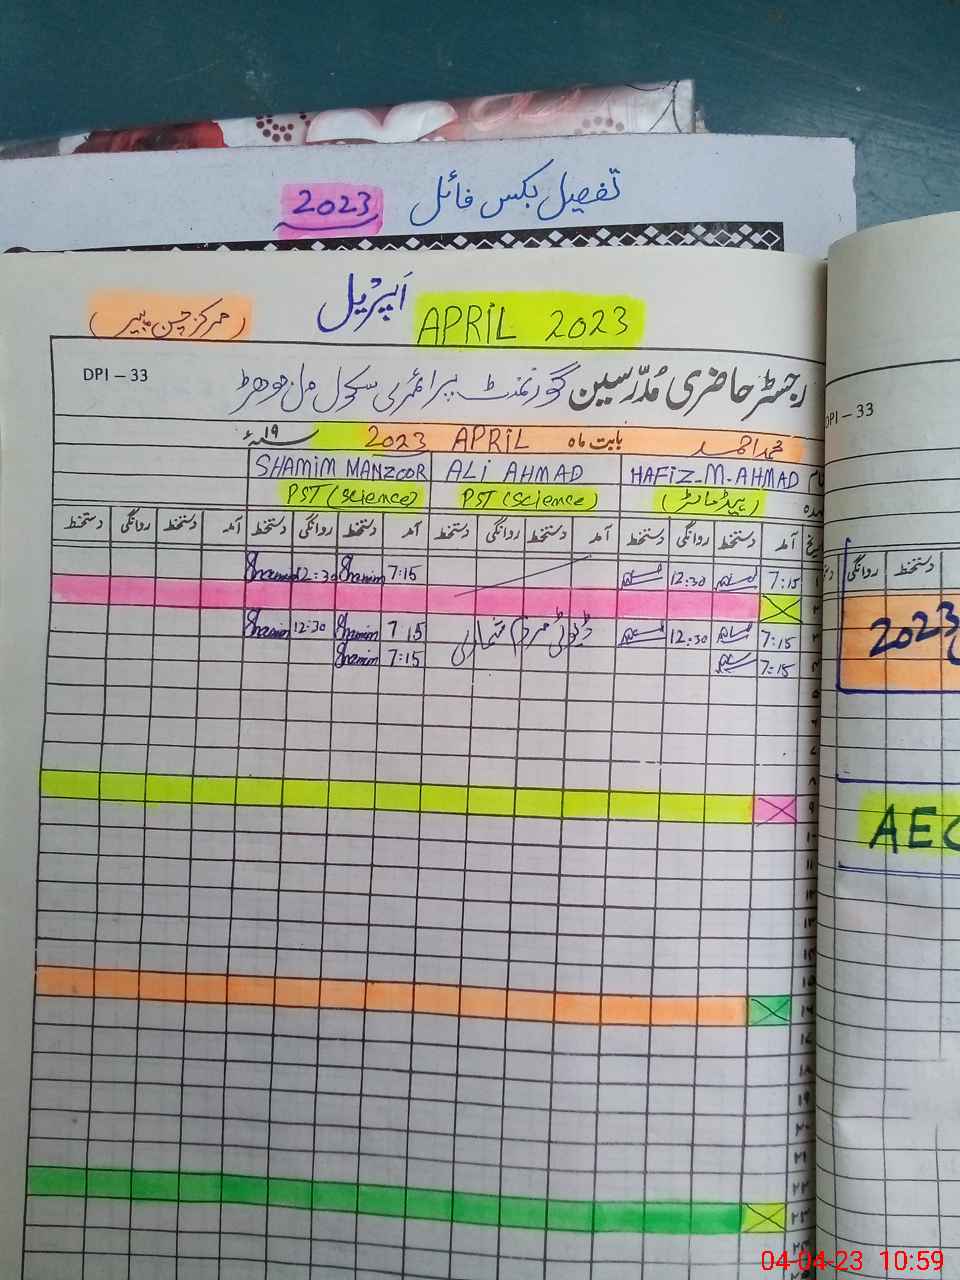 تفصیل بکس فائل 2023
اپریل APRIL 2023
DPI – 33
رجسٹر حاضری مُدّرسین گورنمنٹ پرائمری سکول مل جوھڑ
محمد احمد بابت ماہ APRIL 2023 سنہ ۱۹ء
HAFIZ.M.AHMAD ALI AHMAD SHAMIM MANZOOR
(ہیڈ ماسٹر) PST (Science) PST (Science)
آمد دستخط روانگی دستخط آمد دستخط روانگی دستخط آمد دستخط روانگی دستخط آمد دستخط روانگی دستخط
۱ 7:15 12:30 7:15 Shamim 12:30 Shamim
۲
۳ 7:15 12:30 ڈیوٹی مردم شماری 7:15 Shamim 12:30 Shamim
7:15 7:15 Shamim
۹
۱۰
۱۱
۱۲
۱۳
۱۷
۱۸
۱۹
۲۰
۲۱
۲۲
۲۳
DPI – 33
روانگی دستخط
2023
AEO
04-04-23 10:59